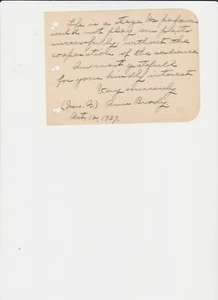 Life is a stage. We perform
will not play our parts
successfully without the
cooperation of the audience
Am most grateful
for your kindly interest
Very sincerely
(Mrs.) Anne Brody
Oct. 12, 1937.